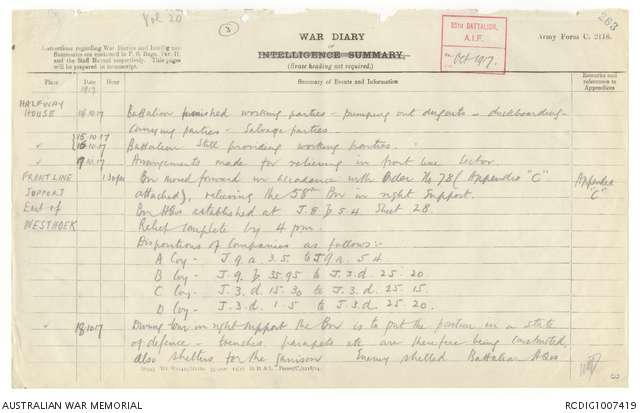 Vol 20
3
263
WAR DIARY
or
INTELLIGENCE SUMMARY.
(Erase heading not required.)
55TH BATTALION, A.I.F.
Oct 1917.
Army Form C. 2118.
Instructions regarding War Diaries and Intelligence Summaries are contained in F. S. Regs., Part II. and the Staff Manual respectively. Title pages will be prepared in manuscript.
Place Date Hour Summary of Events and Information Remarks and references to Appendices
1917
HALFWAY HOUSE 14.10.17 Battalion furnished working parties - pumping out dugouts - duckboarding -
carrying parties - Salvage parties
" 15.10.17
16.10.17 Battalion still providing working parties.
" 9.10.17 Arrangements made for relieving in front line Sector.
FRONT LINE 1.30pm Bn moved forward in accordance with Order No 78 (Appendix "C" Appendix "C"
SUPPORT attached), relieving the 58th Bn in right Support.
East of Bn HQrs established at J.8.b.5.4 Sheet 28.
WESTHOEK Relief complete by 4 pm.
Dispositions of Companies as follows:-
A Coy - J.9.a. 3.5 to J.9.a. 5.4
B Coy - J.9.b. 35.95 to J.3.d. 25.20
C Coy - J.3.d. 15.30 to J.3.d. 25.15
D Coy - J.3.d. 1.5 to J.3.d. 25.20.
" 18.10.17 During tour in right support the Bn is to put the position in a state
of defence - trenches, parapets etc are therefore being constructed,
also shelters for the garrison Enemy shelled Battalion HQrs
AUSTRALIAN WAR MEMORIAL
RCDIG1007419